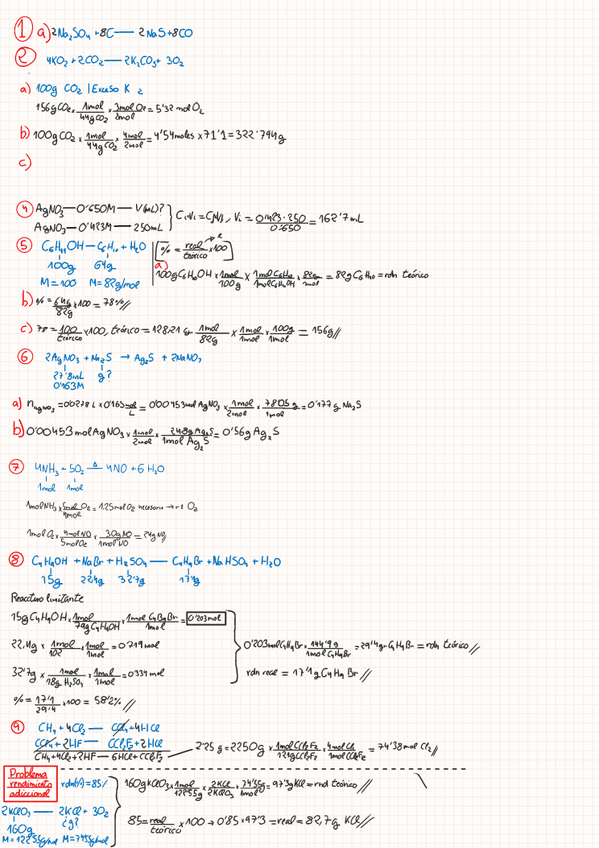 1 a) 2Na₂SO₄ + 8C — 2NaS + 8CO
2 4KO₂ + 2CO₂ — 2K₂CO₃ + 3O₂
a) 100g CO₂ | Exceso K 2
156gCO₂ x 1mol/44gCO₂ x 3molO₂/2mol = 5'32 mol O₂
b) 100gCO₂ x 1mol/44gCO₂ x 4mol/2mol = 4'54moles x 71'1 = 322'794g
c)
4 AgNO₃ — 0'650M — V(mL)?
AgNO₃ — 0'423M — 250mL
C₁V₁ = C₂V₂, V₁ = 0'423·250/0'650 = 162'7mL
5 C₆H₁₁OH — C₆H₁₀ + H₂O
100g 64g
M=100 M=82g/mol
% = real/teórico x 100
a) 100g C₆H₁₁OH x 1mol/100g x 1molC₆H₁₀/1molC₆H₁₁OH x 82g/mol = 82g C₆H₁₀ = rdn teórico
b) % = 64g/82g x 100 = 78%//
c) 78 = 100/teórico x 100, teórico = 128,21 g x 1mol/82g x 1mol/1mol x 100g/1mol = 156g//
6 2AgNO₃ + Na₂S → Ag₂S + 2NaNO₃
27'8mL g?
0'163M
a) nAgNO₃ = 0'0278 L x 0'163 mol/L = 0'00453mol AgNO₃ x 1mol/2mol x 78'05g/1mol = 0'177g Na₂S
b) 0'00453mol AgNO₃ x 1mol/2mol x 248g Ag₂S/1mol Ag₂S = 0'56g Ag₂S
7 4NH₃ + 5O₂ —Δ— 4NO + 6H₂O
1mol 1mol
1molNH₃ x 5mol/4mol O₂ = 1.25molO₂ necesario → r.l O₂
1molO₂ x 4molNO/5molO₂ x 30gNO/1molNO = 24gNO
8 C₄H₉OH + NaBr + H₂SO₄ — C₄H₉Br + NaHSO₄ + H₂O
15g 22'4g 32'7g 17'1g
Reactivo limitante
15g C₄H₉OH x 1mol/74gC₄H₉OH x 1mol C₄H₉Br/1mol = 0'203mol
22,4g x 1mol/102 x 1mol/1mol = 0'219mol
32'7g x 1mol/98g H₂SO₄ x 1mol/1mol = 0'334mol
0'203molC₄H₉Br x 144'9g/1molC₄H₉Br = 29'4g C₄H₉Br = rdn teórico//
rdn real = 17'1g C₄H₉Br//
% = 17'1/29'4 x 100 = 58'2%//
9 CH₄ + 4Cl₂ — CCl₄ + 4HCl
CCl₄ + 2HF — CCl₂F₂ + 2HCl
CH₄ + 4Cl₂ + 2HF — 6HCl + CCl₂F₂
2'25g = 2250g x 1molCCl₂F₂/121gCCl₂F₂ x 4molCl₂/1molCCl₂F₂ = 74'38mol Cl₂//
Problema
rendimiento
adiccional
rdn(%) = 85%
2KClO₃ — 2KCl + 3O₂
160g ¿g?
M=122'55g/mol M=74'55g/mol
160gKClO₃ x 1mol/122'55g x 2KCl/2KClO₃ x 74'55g/1mol = 97'3gKCl = rnd teórico//
85 = real/teórico x 100 → 0'85 x 97'3 = real = 82,7g KCl//